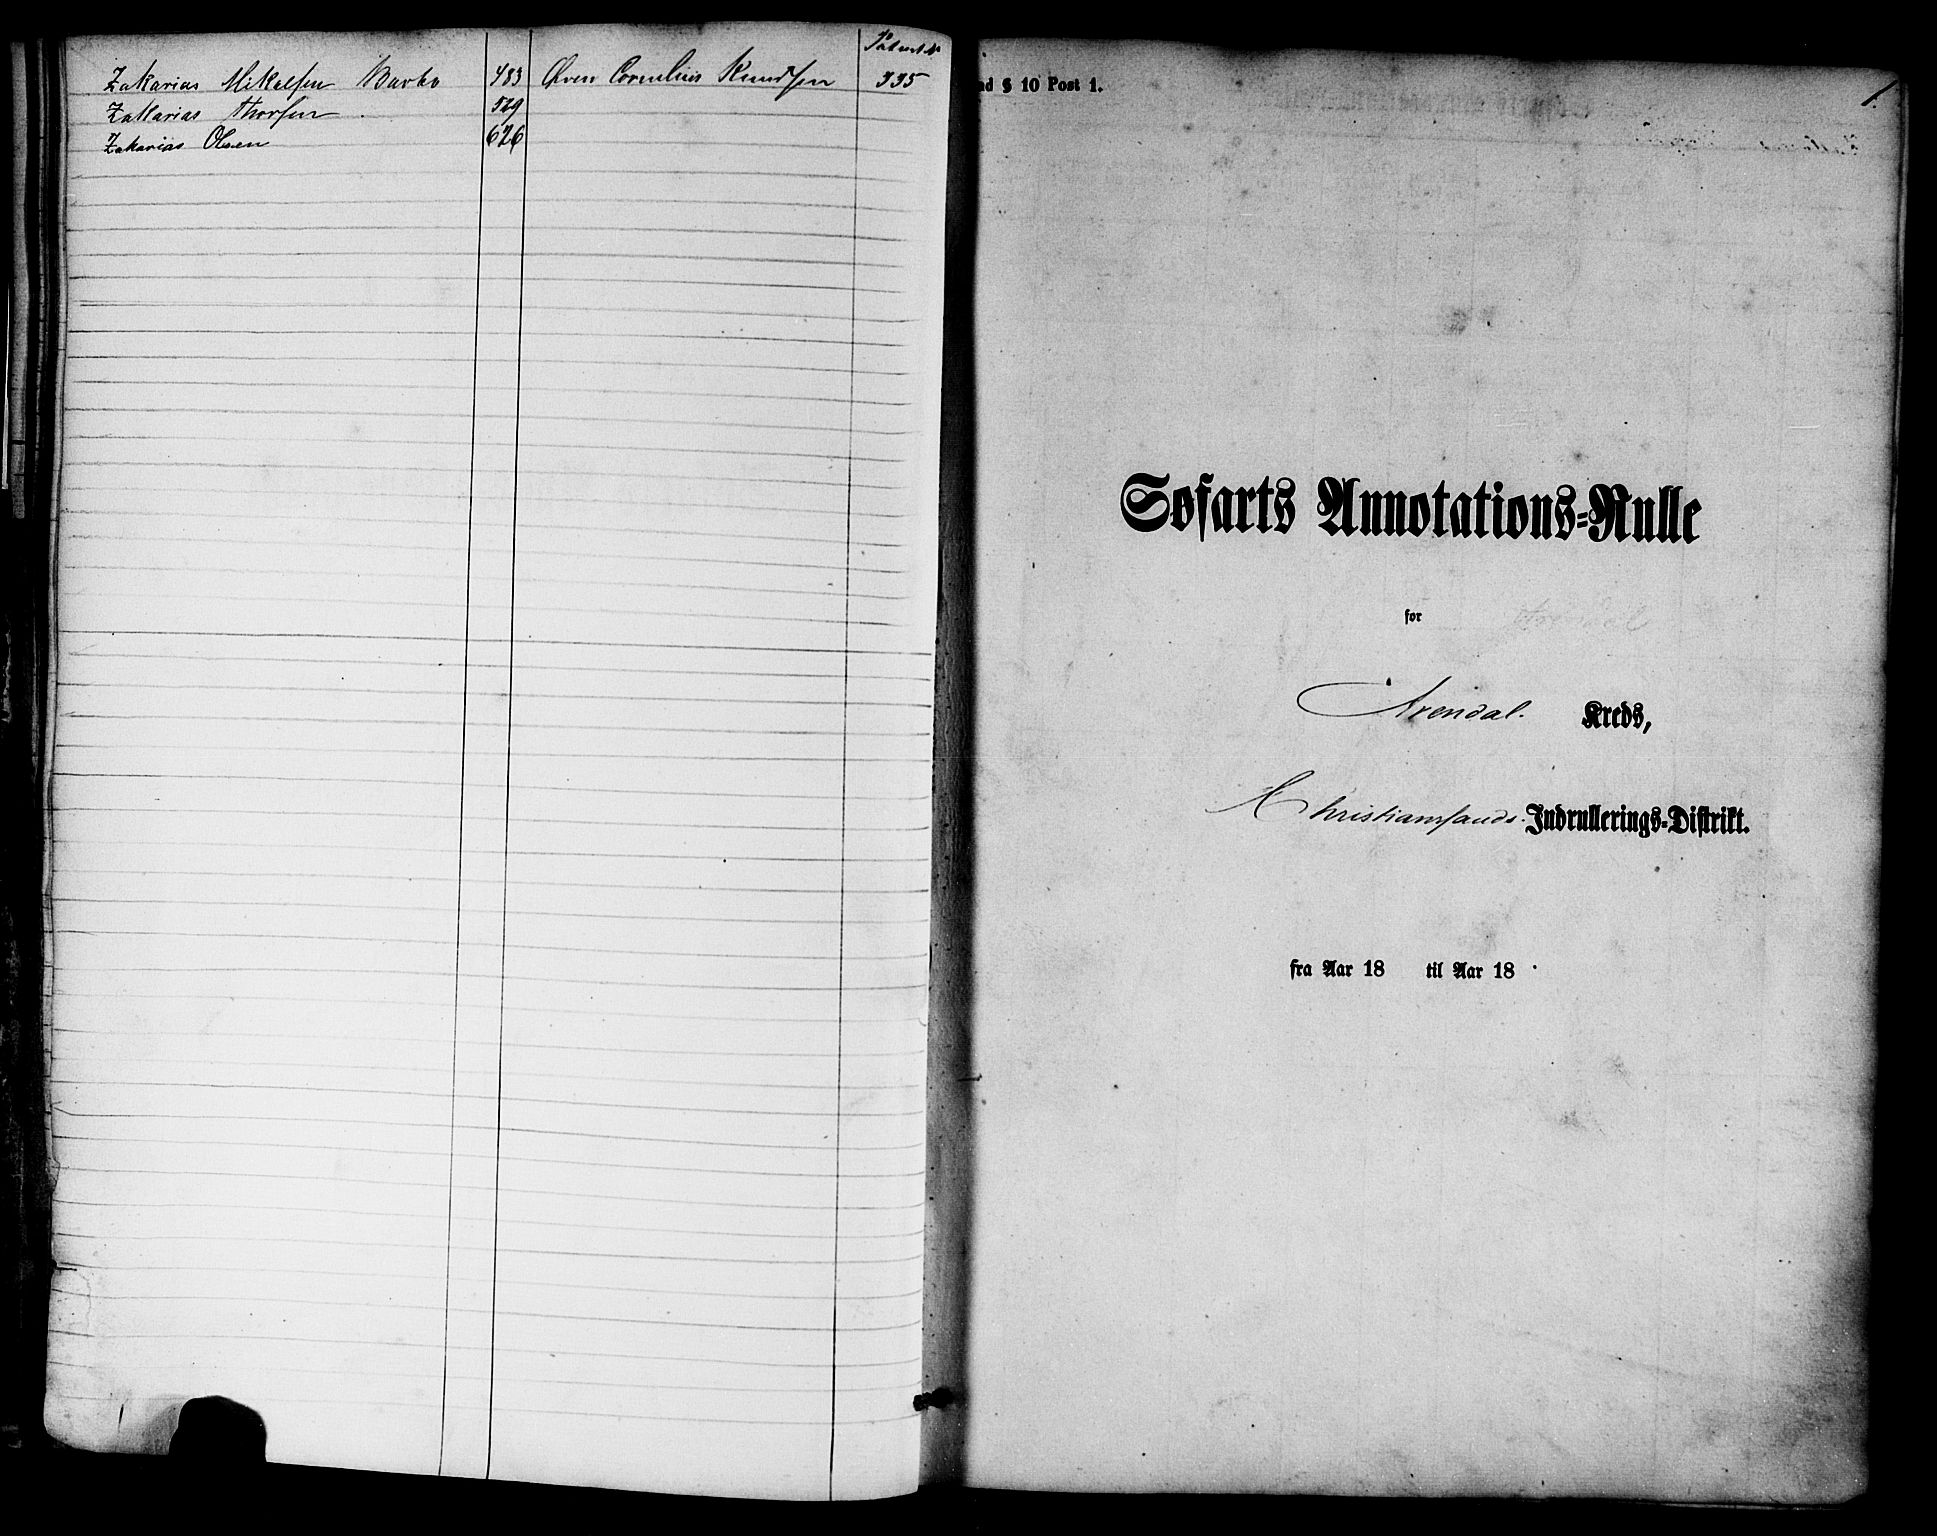 Zakarias Mikelsen Barbo 483 Øven Cornelius Knudsen 335
Zakarias Thorsen 529
Zakarias Olsen 626
ad § 10 Post 1.
1.
Søfarts Annotations-Rulle
for Arendal
Arendal. Kreds,
Christianssands. Indrullerings-Distrikt.
fra Aar 18 til Aar 18 .